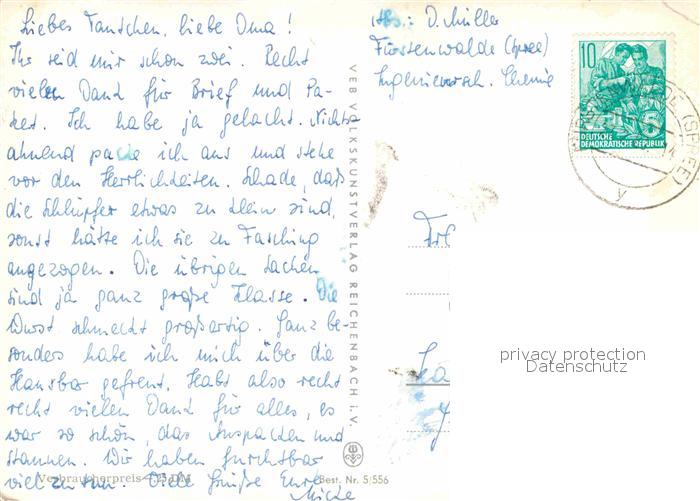 Liebes Tantchen, liebe Oma!
Ihr seid mir schon zwei. Recht
vielen Dank für Brief und Pa-
ket. Ich habe ja gelacht. Nichts
ahnend packe ich aus und stehe
vor den Herrlichkeiten. Schade, daß
die Schlüpfer etwas zu klein sind,
sonst hätte ich sie zu Fasching
angezogen. Die übrigen Sachen
sind ja ganz große Klasse. Die
Wurst schmeckt großartig. Ganz be-
sonders habe ich mich über die
Hausbar gefreut. Habt also recht
recht vielen Dank für alles, es
war so schön, das Auspacken und
Staunen. Wir haben furchtbar
viel zu tun. Viele Grüße Eure
Abs.: D. Müller
Fürstenwalde (Spree)
Ingenieursch. Chemie
VEB VOLKSKUNSTVERLAG REICHENBACH i. V.
Verbraucherpreis DM
Best. Nr. 5/556
10
DEUTSCHE
DEMOKRATISCHE REPUBLIK
(SPREE)
y
Frl
privacy protection
Datenschutz